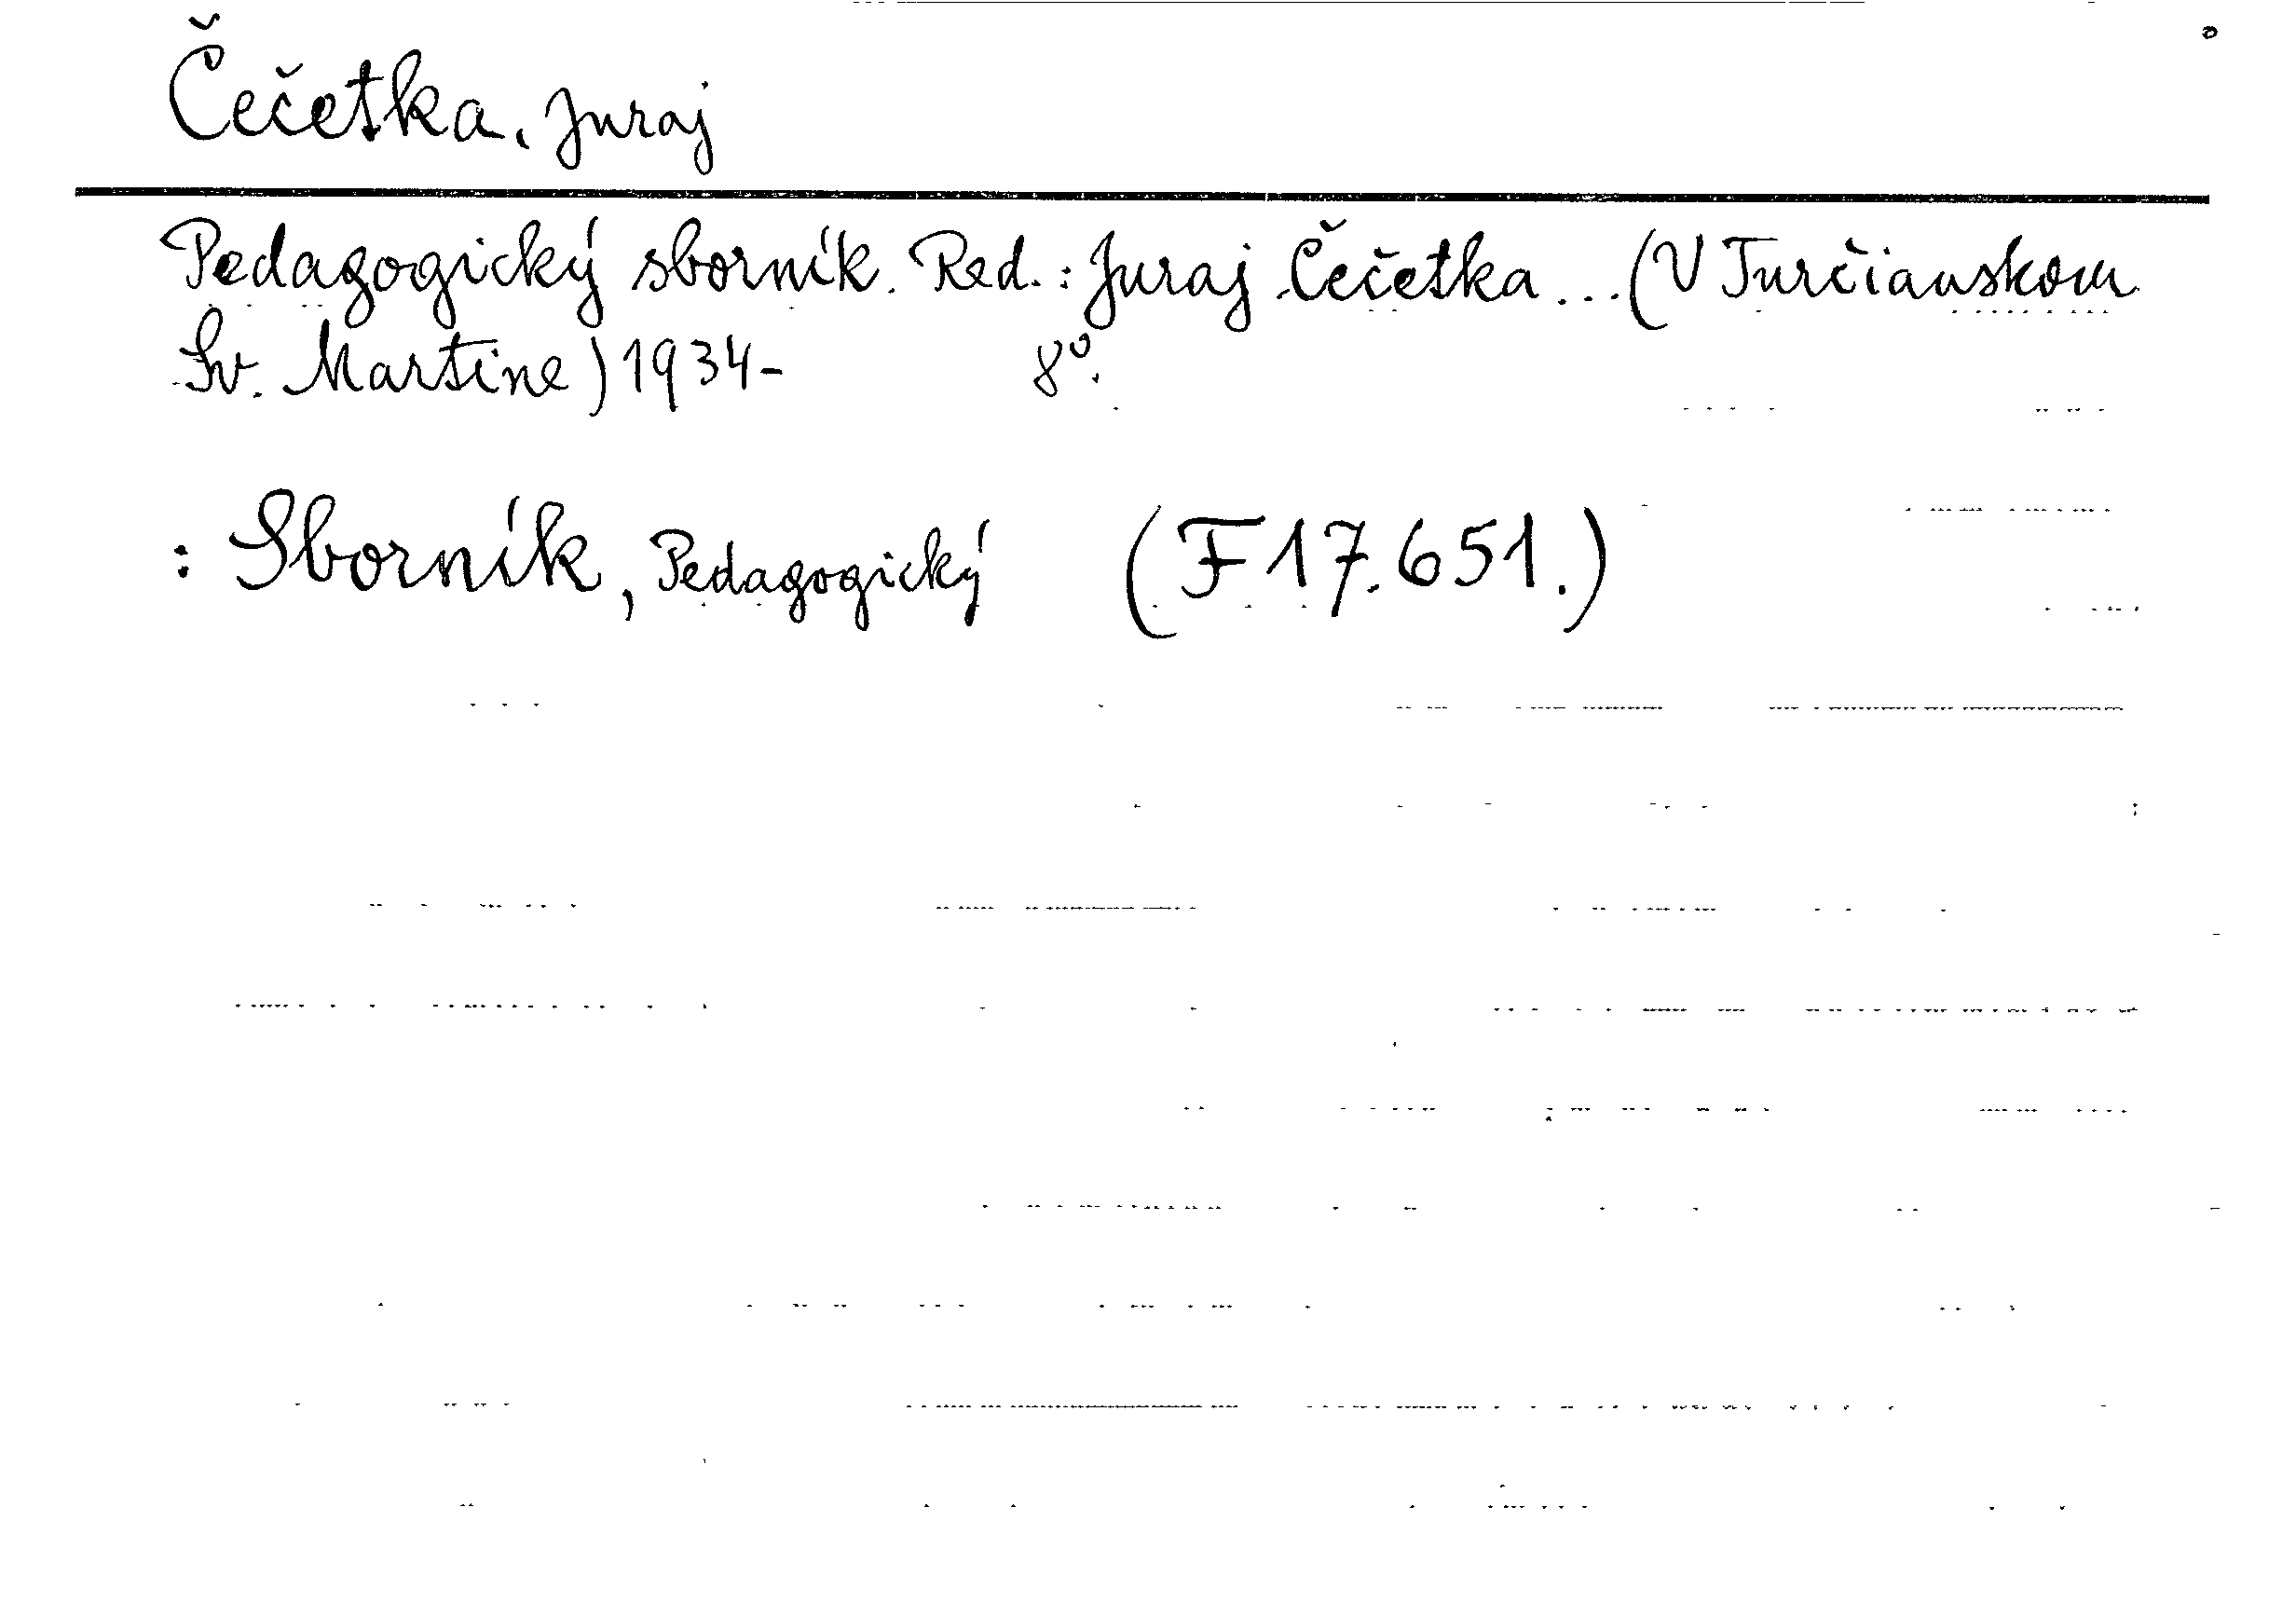 Čečetka, Juraj
Pedagogický sborník. Red.: Juraj Čečetka...(V Turčianskom
Sv. Martine) 1934- 8º.
: Sborník, Pedagogický (F 17.651.)